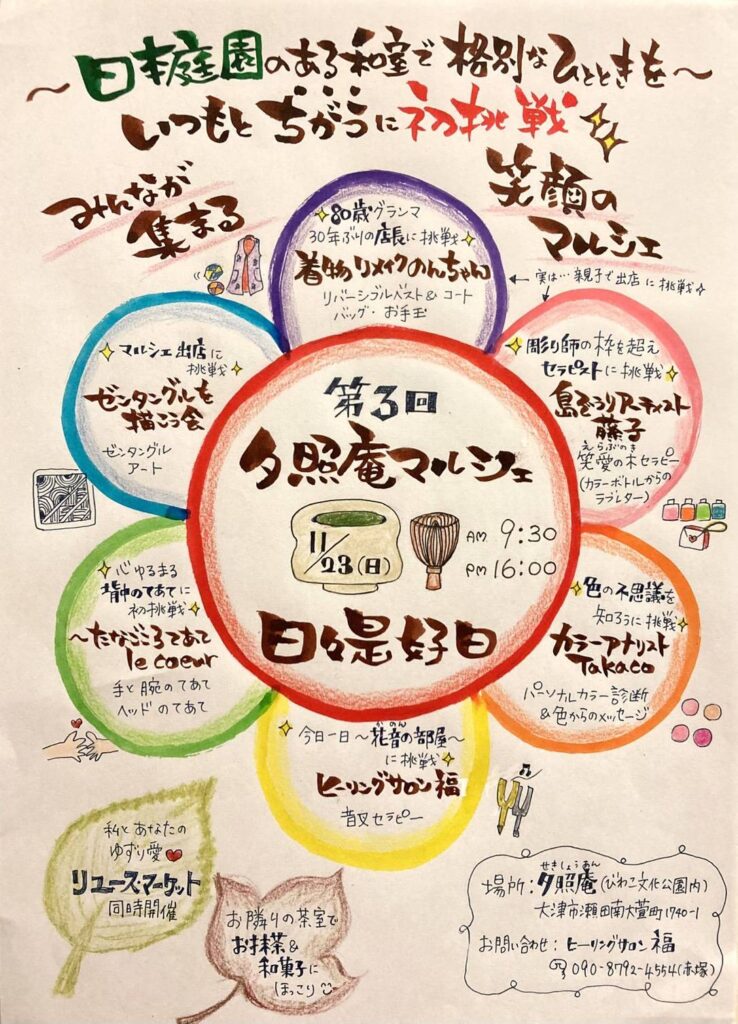 ～日本庭園のある和室で格別なひとときを～
いつもとちがうに初挑戦
みんなが
集まる
笑顔の
マルシェ
80歳グランマ
30年ぶりの店長に挑戦
着物リメイクのんちゃん
リバーシブルベスト& コート
バッグ・お手玉
← 実は…親子で出店に挑戦
マルシェ出店に
挑戦
ゼンタングルを
描こう会
ゼンタングル
アート
彫り師の枠を超え
セラピストに挑戦
アーティスト
藤子
えらぶのき
笑愛の木セラピー
(カラーボトルからの
ラブレター)
第3回
夕照庵マルシェ
11/23(日)
AM 9:30
PM 16:00
日々是好日
心ゆるまる
背中のてあてに
初挑戦
～たなごころてあて
le coeur
手と腕のてあて
ヘッドのてあて
色の不思議を
知ろうに挑戦
カラーアナリスト
Takaco
パーソナルカラー診断
&色からのメッセージ
かのん
今日一日～花音の部屋～
に挑戦
ヒーリングサロン福
音叉セラピー
私とあなたの
ゆずり愛
リユース・マーケット
同時開催
お隣りの茶室で
お抹茶&
和菓子に
ほっこり
せきしょうあん
場所：夕照庵(びわこ文化公園内)
大津市瀬田南大萱町1740-1
お問い合わせ：ヒーリングサロン福
090-8792-4554(赤塚)